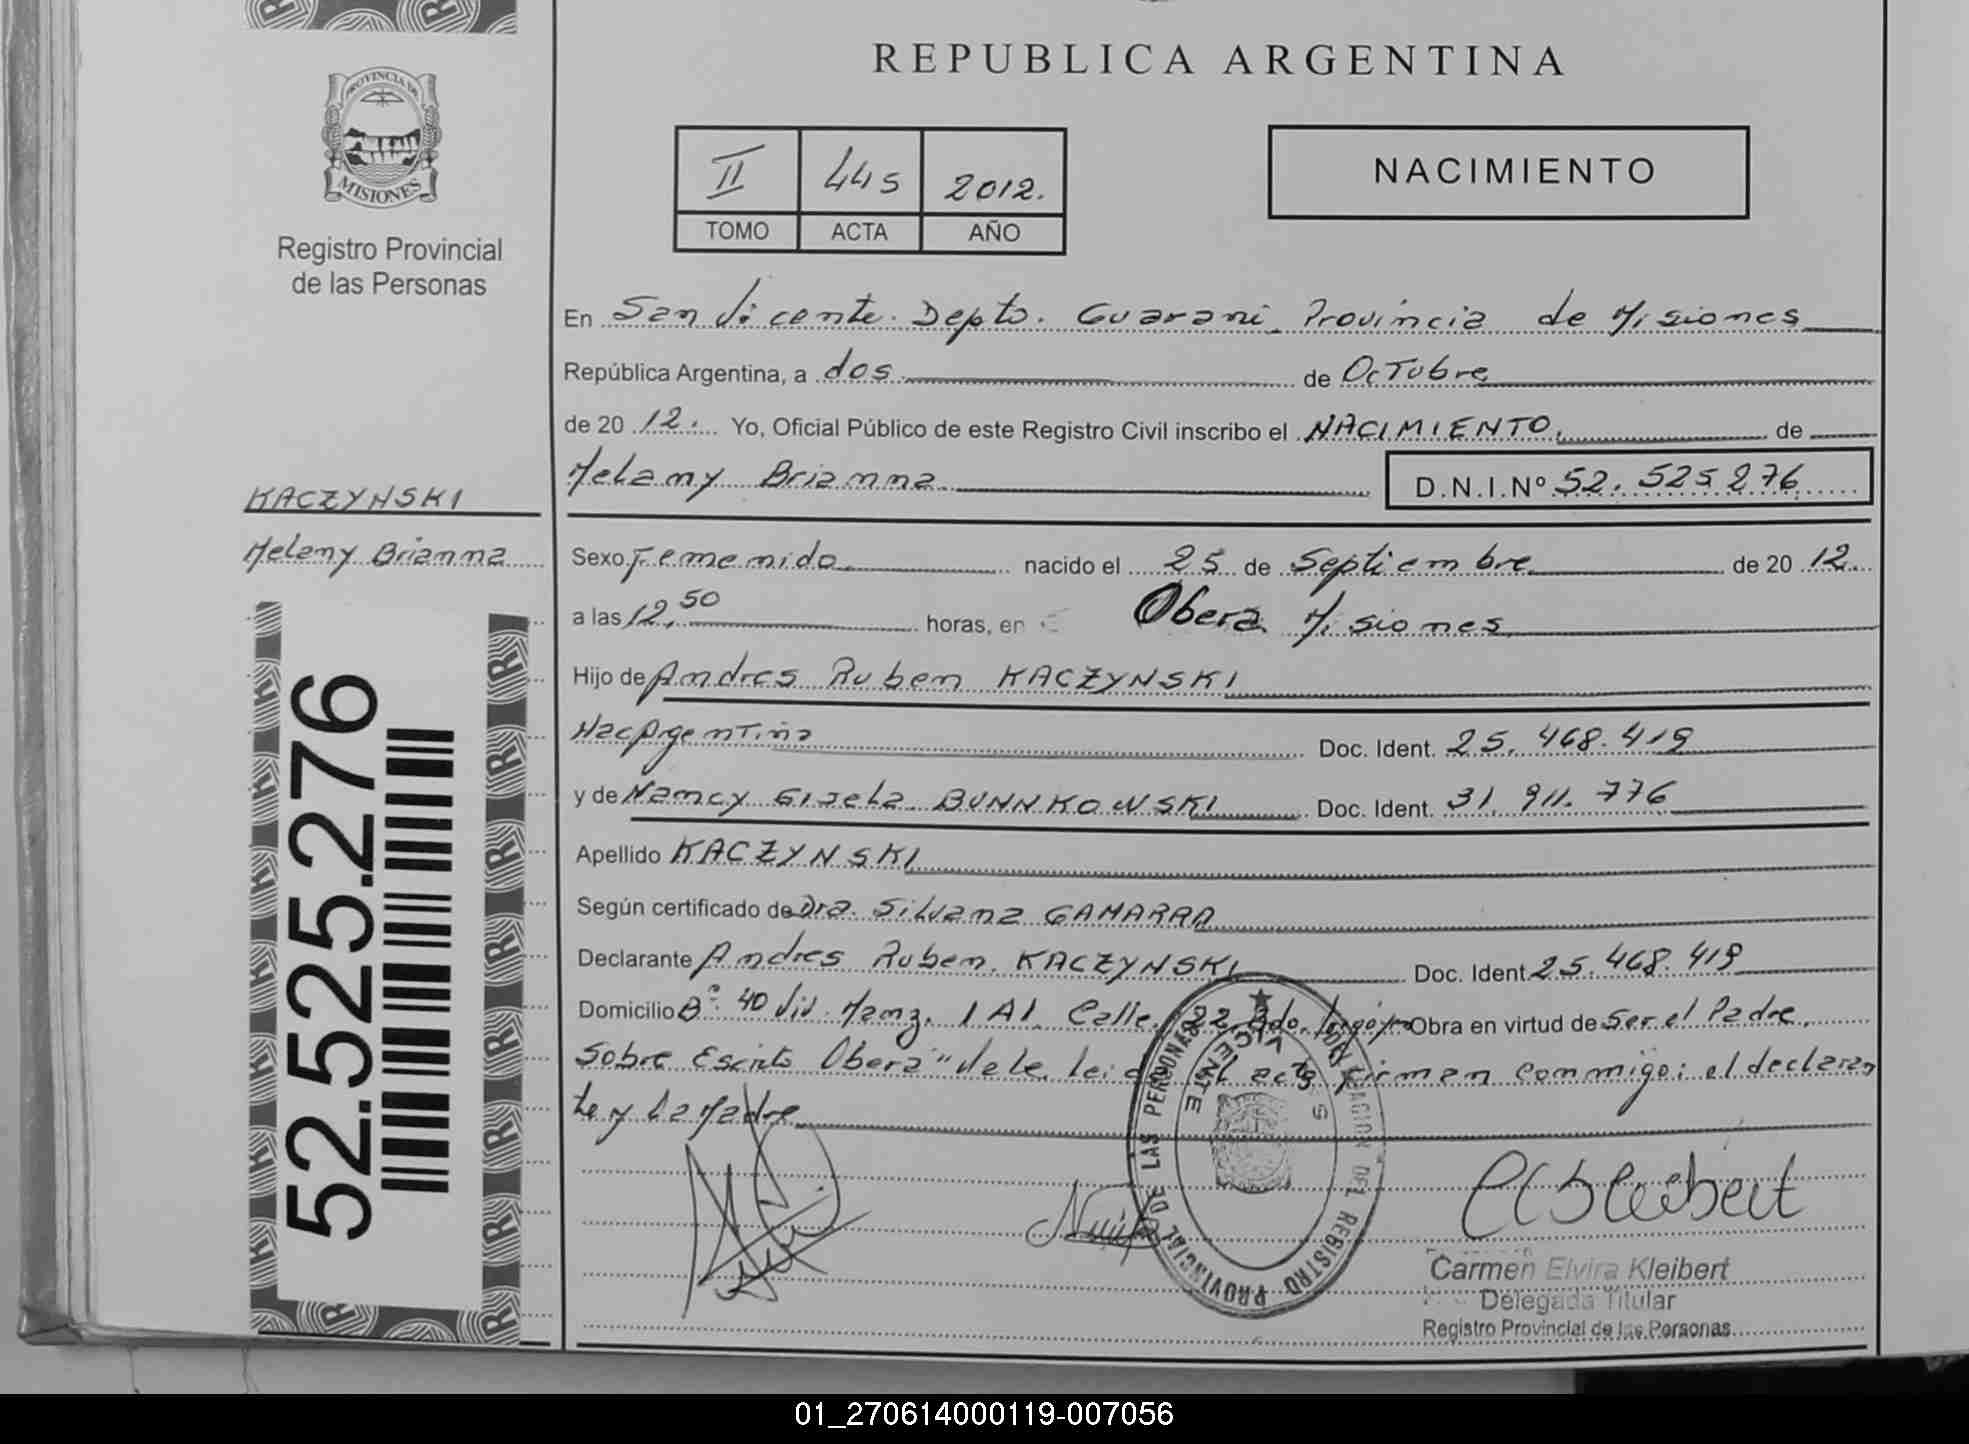 PROVINCIA DE
MISIONES
Registro Provincial
de las Personas
KACZYNSKI
Melany Brianna
52.525.276
REPUBLICA ARGENTINA
II 445 2012.
TOMO ACTA AÑO
NACIMIENTO
En San Vicente. Depto. Guarani. Provincia de Misiones
República Argentina, a dos de OcTubre
de 20 12. Yo, Oficial Público de este Registro Civil inscribo el NACIMIENTO. de
Melany Brianna D.N.I.Nº 52.525276
Sexo Femenido nacido el 25 de Septiembre de 20 12.
a las 12,50 horas, en Obera Misiones
Hijo de Andres Ruben KACZYNSKI
Nac Argentina Doc. Ident. 25.468.419
y de Nancy Gisela BUNNKOWSKI Doc. Ident. 31.911.776
Apellido KACZYNSKI
Según certificado de Dra. Silvana GAMARRA
Declarante Andres Ruben. KACZYNSKI Doc. Ident. 25.468.419
Domicilio Bº. 40 Viv. Manz. 1 A1. Calle. 22 Obra en virtud de ser el Padre.
Sobre Escrito Obera" Vale. acta firman conmigo: el declaran
te y La Madre
REGISTRO PROVINCIAL DE LAS PERSONAS
VICENTE
Carmen Elvira Kleibert
Delegada Titular
Registro Provincial de las Personas
01_270614000119-007056